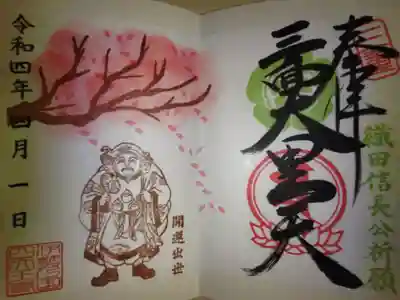 奉拝
織田信長公祈願
三面大黒天
開運出世
令和四年四月一日